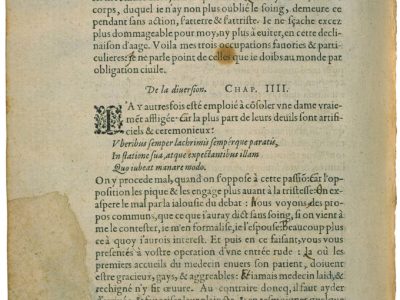 corps, duquel ie n'ay non plus oublié le soing, demeure ce
pendant sans action, s'atterre & s'attriste. Ie ne sçache excez
plus dommageable pour moy, ny plus à euiter, en cette declinaison
d'aage. Voila mes trois occupations fauories & particulieres:
ie ne parle point de celles que ie doibs au monde par
obligation ciuile.
De la diuersion. CHAP. IIII.
I'Ay autresfois esté emploié à cõsoler vne dame vraiemẽt
affligée: Car la plus part de leurs deuils sont artificiels
& ceremonieux:
Vberibus semper lachrimis sempérque paratis,
In statione sua, atque expectantibus illam
Quo iubeat manare modo.
On y procede mal, quand on s'oppose à cette passiõ: Car l'opposition
les pique & les engage plus auant à la tristesse: On exaspere
le mal par la ialousie du debat: Nous voyons, des propos
communs, que ce que i'auray dict sans soing, si on vient à
me le contester, ie m'en formalise, ie l'espouse: Beaucoup plus
ce à quoy i'aurois interest. Et puis en ce faisant, vous vous
presentés à vostre operation d'vne entrée rude: là où les
premiers accueils du medecin enuers son patient, doiuent
estre gracieux, gays, & aggreables: Et iamais medecin laid, &
rechigné n'y fit œuure. Au contraire doncq, il faut ayder